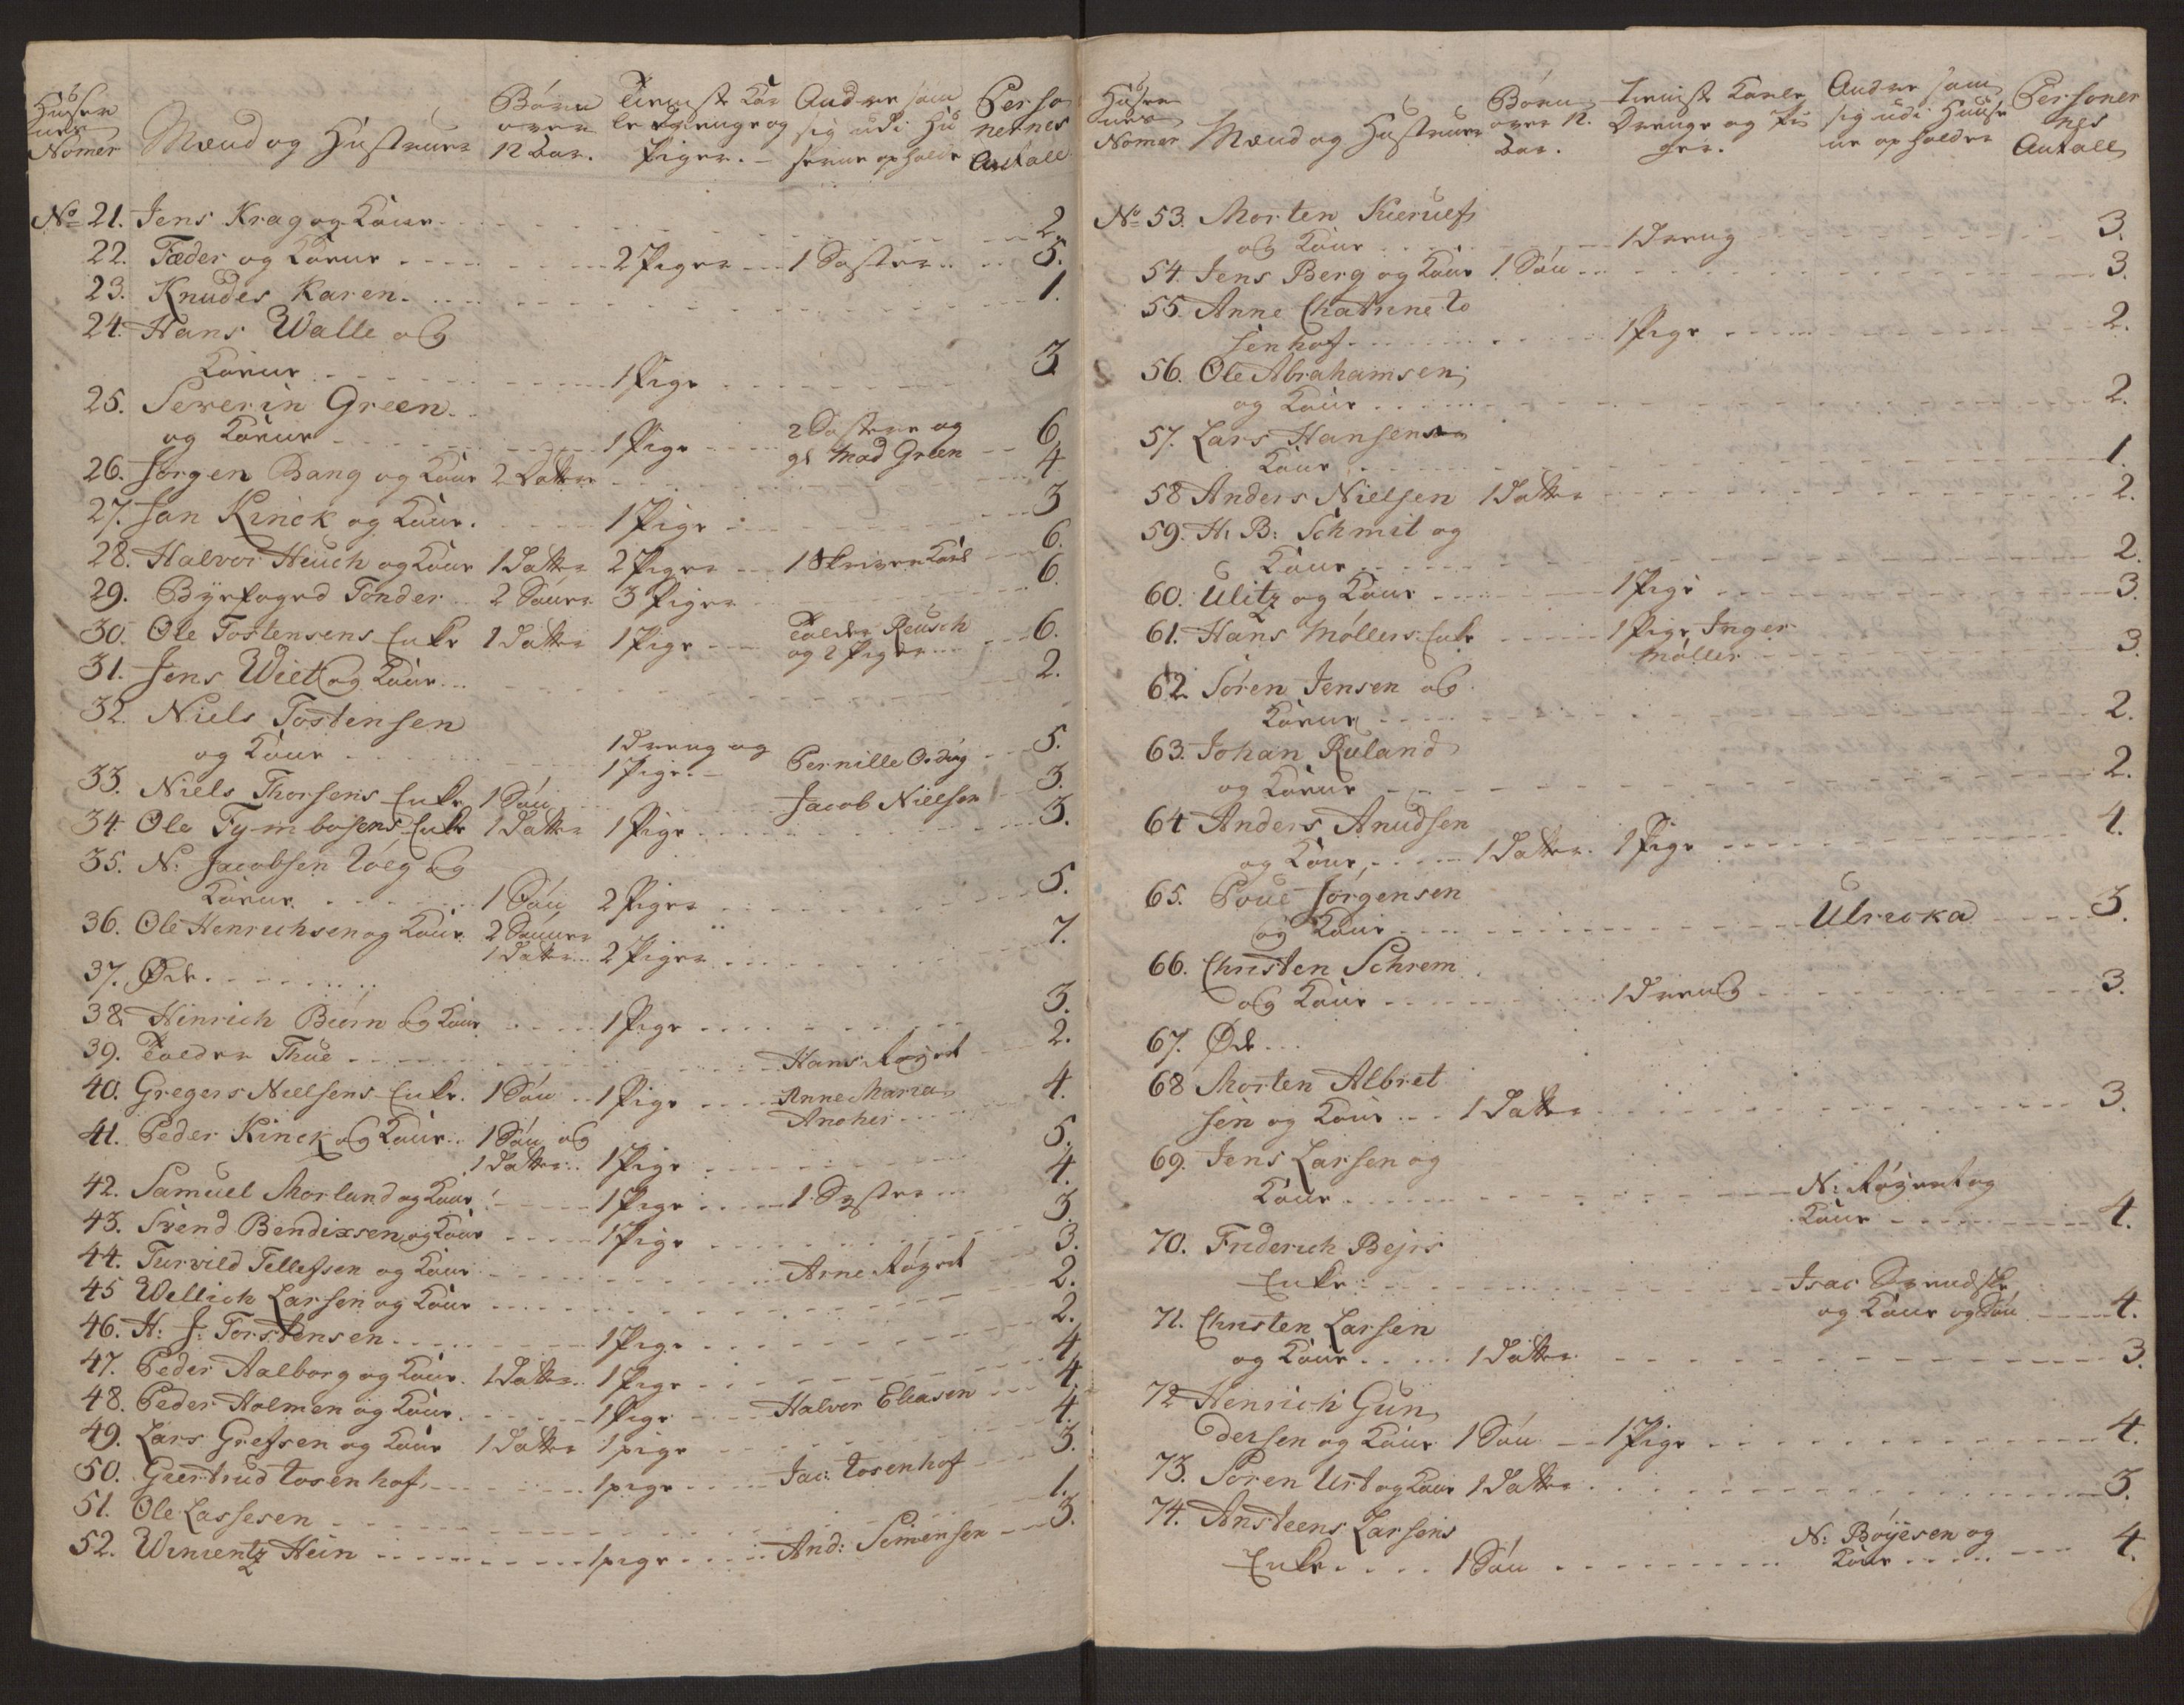 Husernes Nomer
Mænd og Hustruer
Børn over 12 Aar.
Tieniste Karle Drenge og Piger.
Andre som sig udi Huserne opholde
Personernes Antall
No 21. Jens Krag og Kone 2.
22. Fæder og Kone 2 Piger 1 Søster 5.
23. Knudes Karen 1.
24. Hans Walle og
Kone 1 Pige 3
25. Severin Green
og Kone 1 Pige 2 Søstere og gl Mad Green 6
26. Jørgen Bang og Kone 2 Døttre 4
27. Jan Kinck og Kone 1 Pige 3
28. Halvor Heuch og Kone 1 Datter 2 Piger 1 Skriver Karl 6.
29. Byefoged Tønder 2 Sønner 3 Piger 6.
30. Ole Tostensens Enke 1 Datter 1 Pige Tolder Reusch og 2 Piger 6.
31. Jens Wiet og Kone 2.
32. Niels Tostensen
og Kone 1 Dreng og 1 Pige Pernille Ording 5.
33. Niels Thorsens Enke 1 Søn Jacob Nielsen 3.
34. Ole Tymbosens Enke 1 Datter 1 Pige 3.
35. N: Jacobsen Løeg og
Kone 1 Søn 2 Piger 5.
36. Ole Henrichsen og Kone 2 Sønner
1 Datter 2 Piger 7.
37. Øde
38. Hinrich Biørn og Kone 1 Pige 3.
39. Tolder Thue Hans Røyert 2.
40. Gregers Nielsens Enke. 1 Søn 1 Pige Anne Maria Ancher 4.
41. Peder Kinck og Kone 1 Søn og
1 Datter 1 Pige 5.
42. Samuel Morland og Kone 1 Pige 1 Syster 4.
43. Svend Bendixsen og Kone 1 Pige 3.
44. Turvild Tellefsen og Kone Arne Røyert 3.
45 Wellich Larsen og Kone 2.
46. H: J: Torstensen 1 Pige 2.
47. Peder Aalborg og Kone 1 Datter 1 Pige 4
48. Peder Holmen og Kone 1 Pige Halvor Eleasen 4.
49. Lars Grefsen og Kone 1 Datter 1 pige 4.
50. Geertrud Tosenhof 1 pige Jac: Tosenhof 3.
51. Ole Lassesen 1.
52. Winentz Hein 1 pige And: Simensen 3.
Husernes Nomer
Mænd og Hustruer
Børn over 12 Aar.
Tieniste Karle Drenge og Piger.
Andre som sig udi Huuserne opholder
Personernes Antall
No 53. Morten Kierulf
og Kone 1 Dreng 3.
54. Jens Berg og Kone 1 Søn 3.
55. Anne Chatrine To
senhof 1 Pige 2.
56. Ole Abrahamsen
og Kone 2.
57. Lars Hansen
Kone 1.
58 Anders Nielsen 1 Datter 2.
59. H: B: Schmit og
Kone 2.
60. Ulitz og Kone 1 Pige 3.
61. Hans Møllers Enke 1 Pige, Inger Møller 3.
62. Søren Jensen og
Kone 2.
63. Johan Ruland
og Kone 2.
64 Anders Anudsen
og Kone 1 Datter 1 Pige 4.
65. Poue Jørgensen
og Kone Ulrecka 3.
66. Christen Schrem
og Kone 1 Dreng 3.
67. Øde
68 Morten Albret
sen og Kone 1 Datter 3.
69. Jens Larsen og
Kone N: Røyert og Kone 4.
70. Friderich Bejrs
Enke Isac Svendsen og Kone og Søn 4.
71. Christen Larsen
og Kone 1 Datter 3.
72 Henrich Gun
dersen og Kone 1 Søn 1 Pige 4.
73. Søren Urt og Kone 1 Datter 3.
74. Ansteens Larsens
Enke 1 Søn N: Bøyesen og Kone 4.